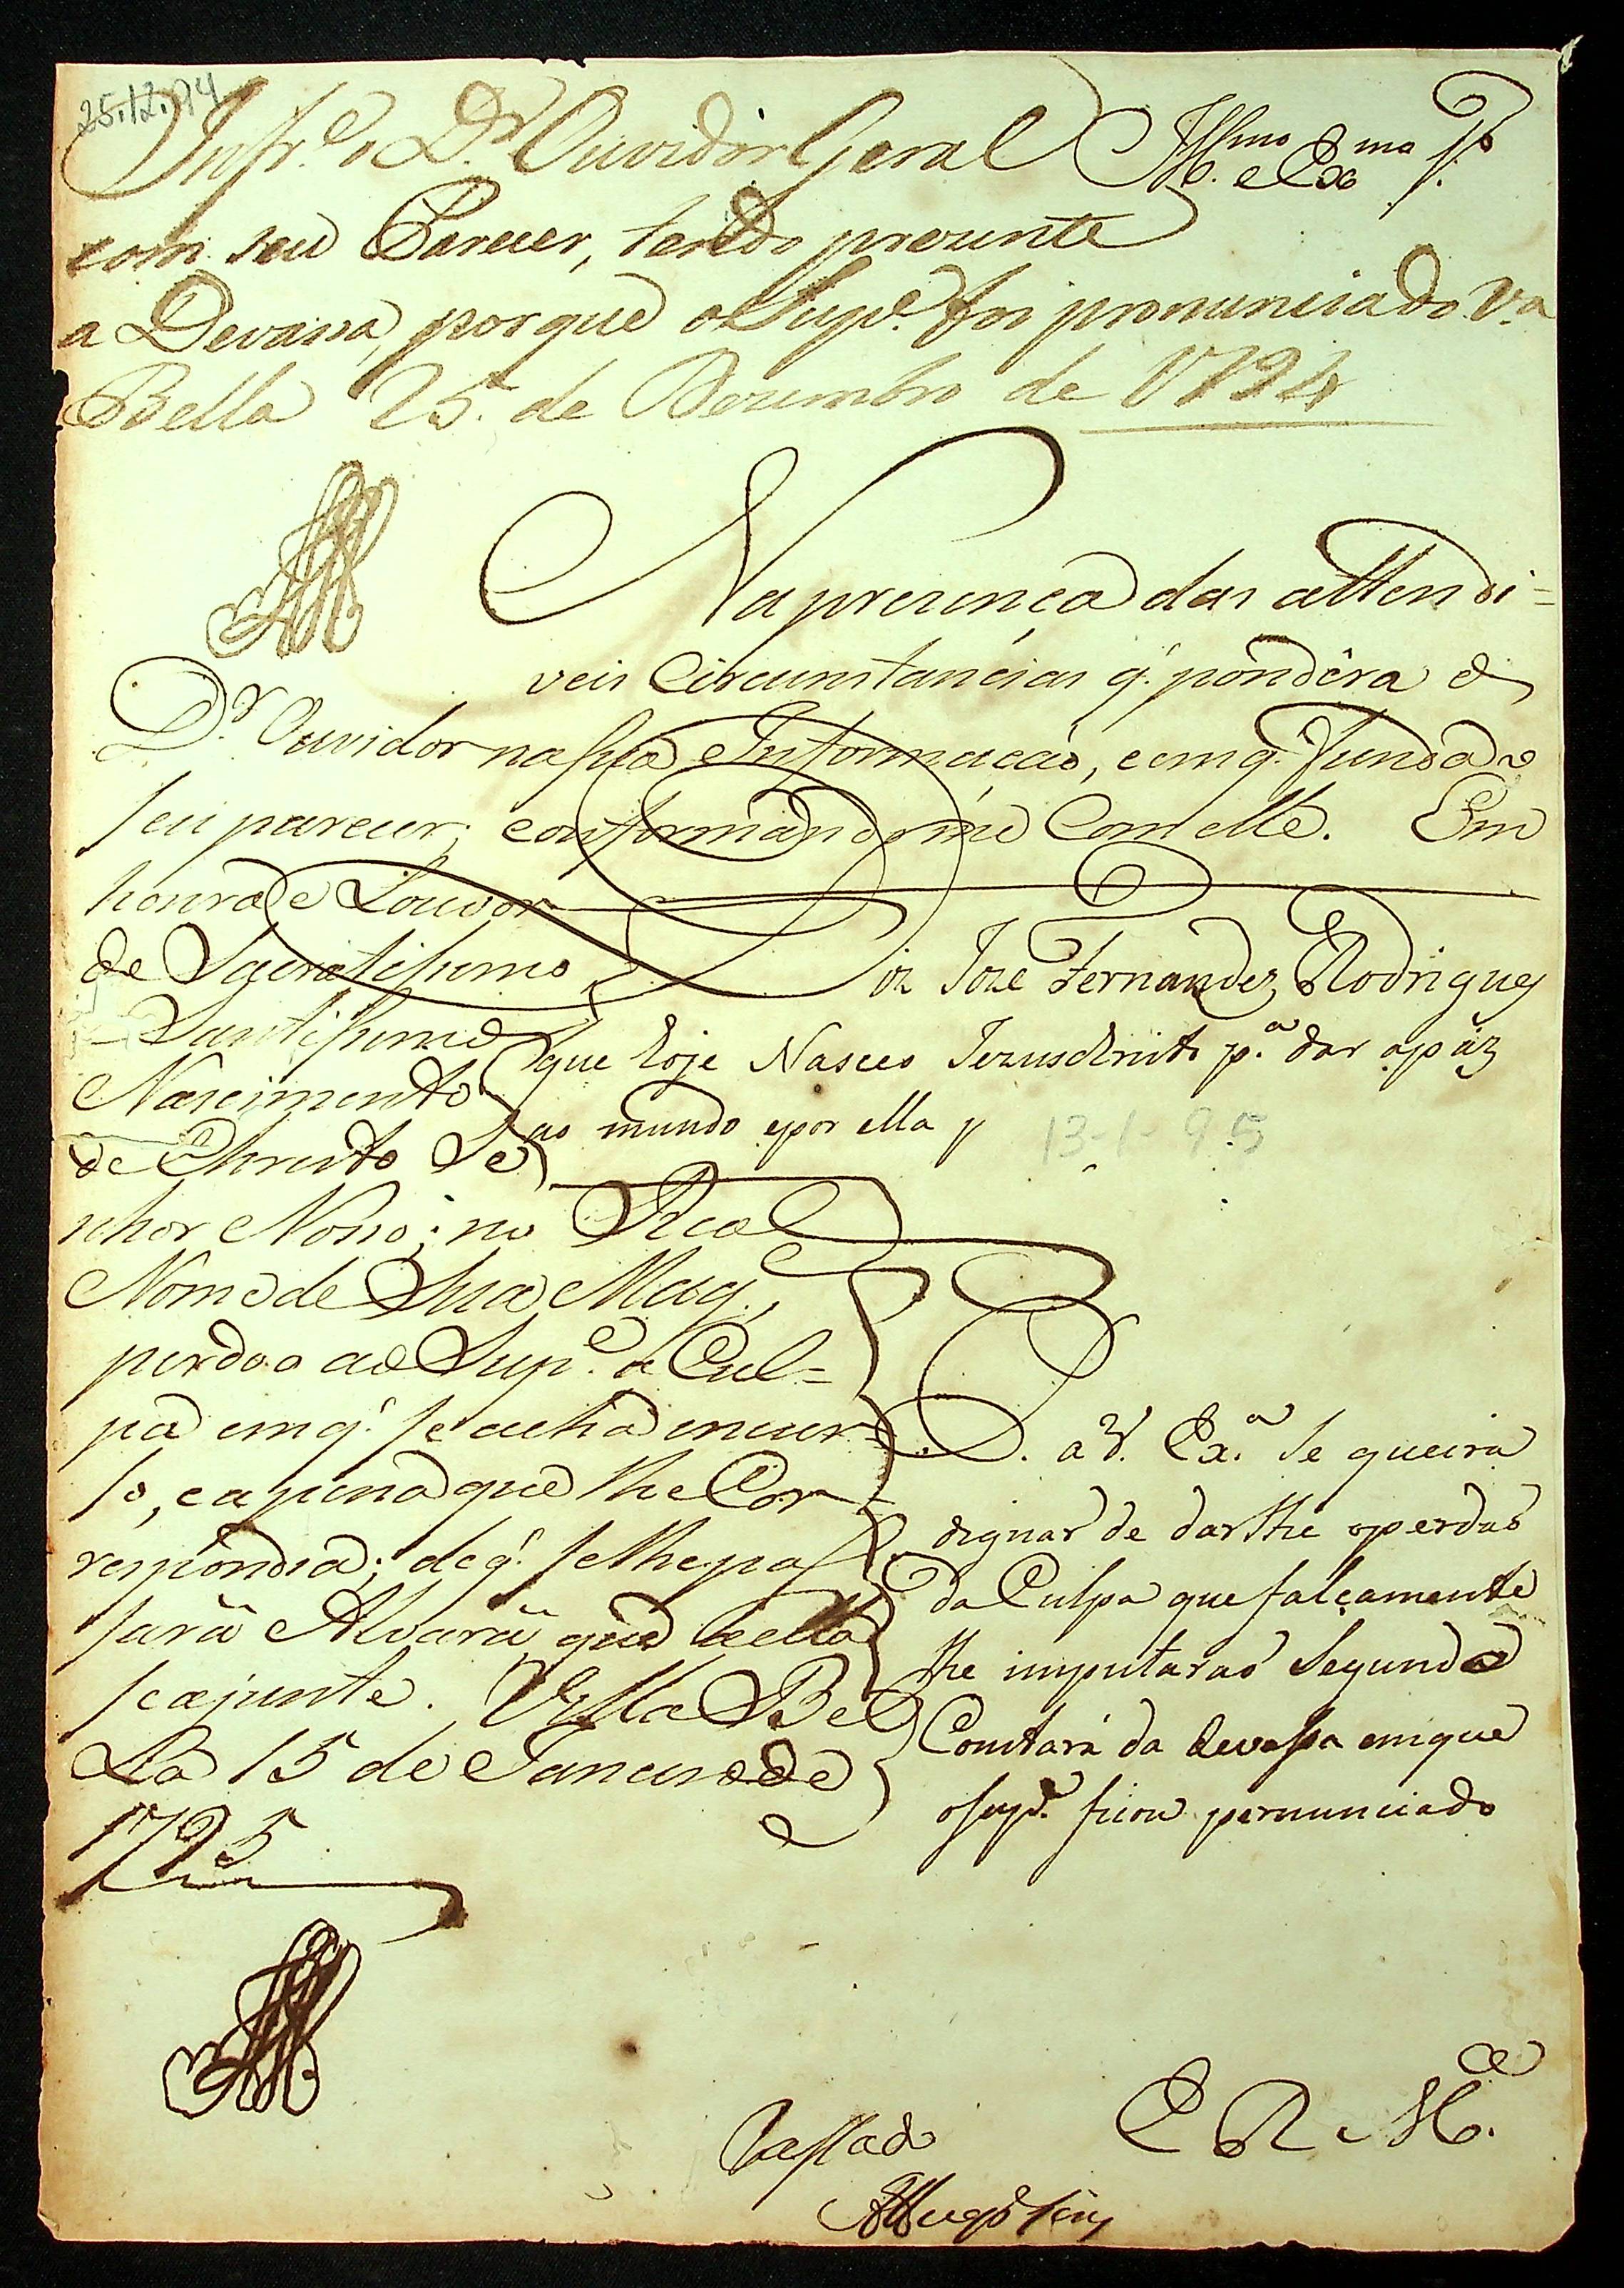 25.12.94
Infr.e o D.r Ouvidor Geral
com seu Parecer, tendo prezente
a Devassa, porque o Sup.e foi pronunciado V.a
Bella 25 de Dezembro de 1794
Illmo e Exmo Sr.
Na prezença das attendi=
veis Circunstancias q. pondéra o
D.r Ouvidor na sua Informação, e em q. funda o
seu parecer; conformandome Com elle. Em
honra, e Louvor
do Sacratissimo
Santissimo
Nascimento
de Christo Se
nhor Nosso; no Real
Nome de Sua Mag.,
perdoo ao Sup.e a Cul=
pa em q. se acha incur=
so, e a pena que lhe Cor=
respondia; de q. se lhe pas
sará Alvará que a ella
se ajunte. Villa Bel
la 15 de Janeiro de
1795
Diz Joze Fernandez Rodrigues
que hoje Nasceo Jezus Christo p.a dar apáz
ao mundo epor ella
13-1-95
P. a V. Ex.a Se queira
dignar de dar lhe operdaõ
da Culpa que falçamente
lhe imputaraõ Segundo
Constará da devassa emque
o sup.e ficou pernunciado
E R M.ce
Passado